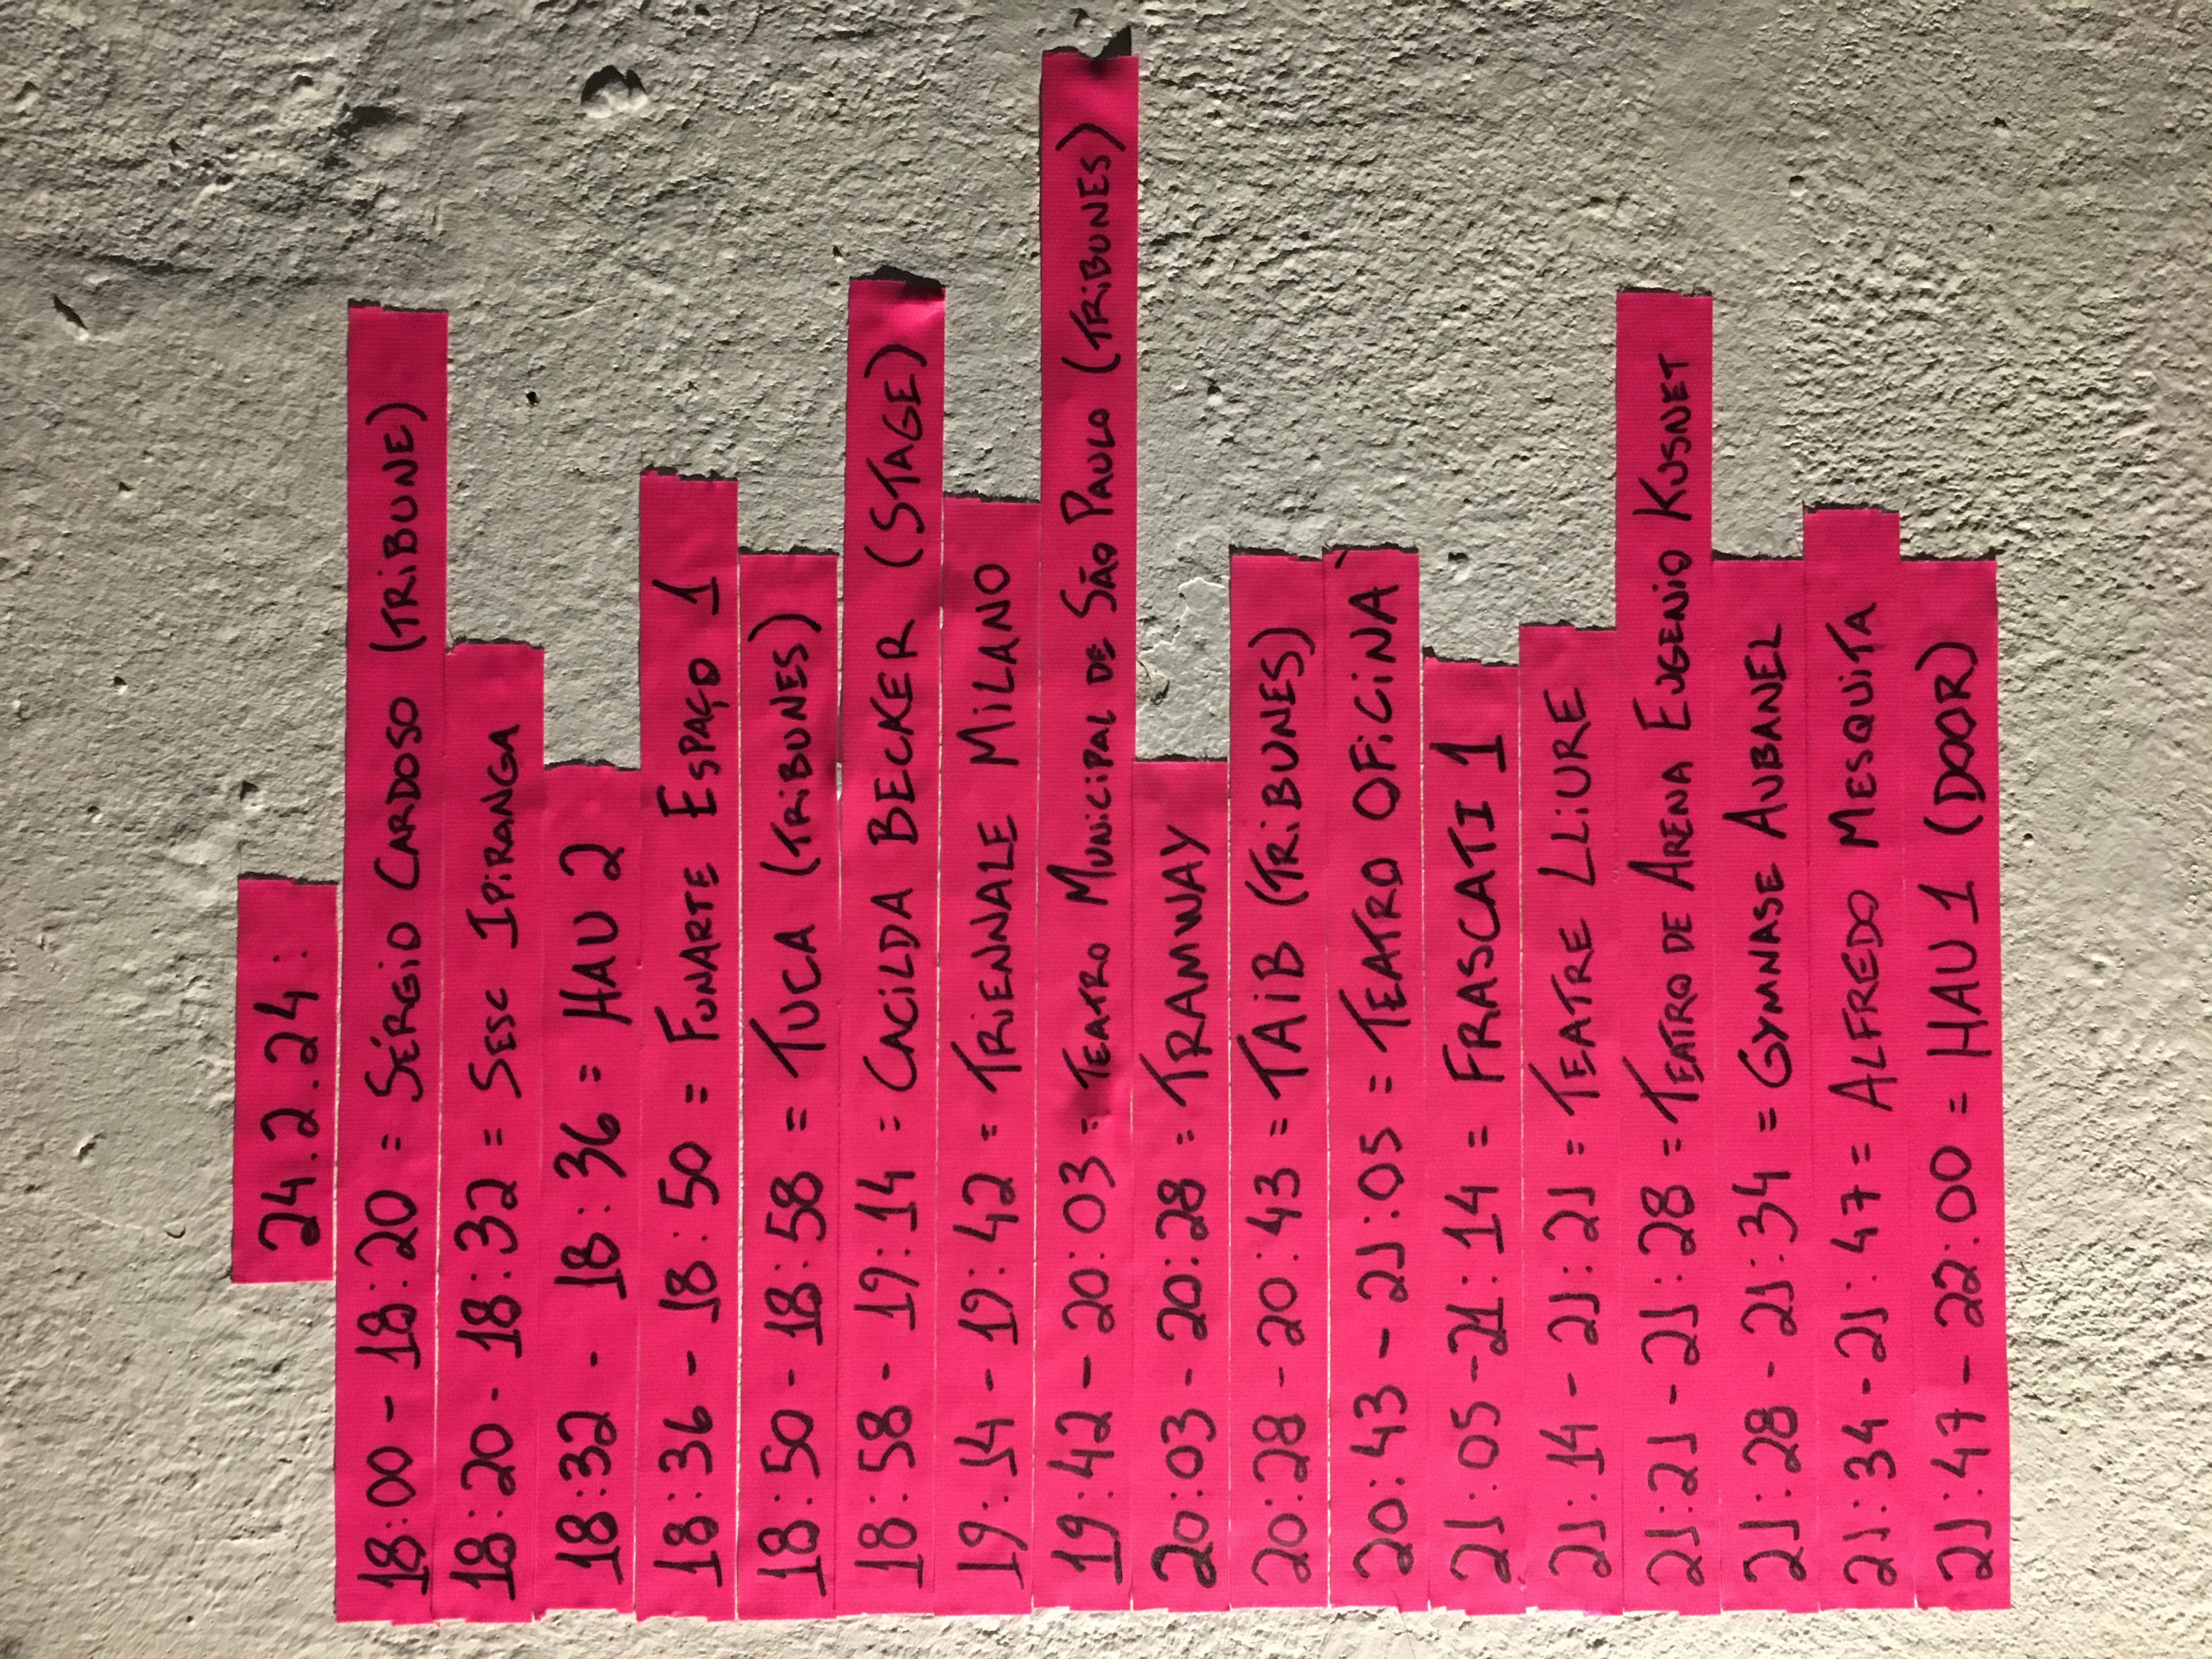 24.2.24:
18:00 - 18:20 = SÉRGIO CARDOSO (TRIBUNE)
18:20 - 18:32 = SESC IPIRANGA
18:32 - 18:36 = HAU 2
18:36 - 18:50 = FUNARTE ESPAÇO 1
18:50 - 18:58 = TUCA (TRIBUNES)
18:58 - 19:14 = CACILDA BECKER (STAGE)
19:14 - 19:42 = TRIENNALE MILANO
19:42 - 20:03 = TEATRO MUNICIPAL DE SÃO PAULO (TRIBUNES)
20:03 - 20:28 = TRAMWAY
20:28 - 20:43 = TAIB (TRIBUNES)
20:43 - 21:05 = TEATRO OFICINA
21:05 - 21:14 = FRASCATI 1
21:14 - 21:21 = TEATRE LLIURE
21:21 - 21:28 = TEATRO DE ARENA EUGENIO KUSNET
21:28 - 21:34 = GYMNASE AUBANEL
21:34 - 21:47 = ALFREDO MESQUITA
21:47 - 22:00 = HAU 1 (DOOR)